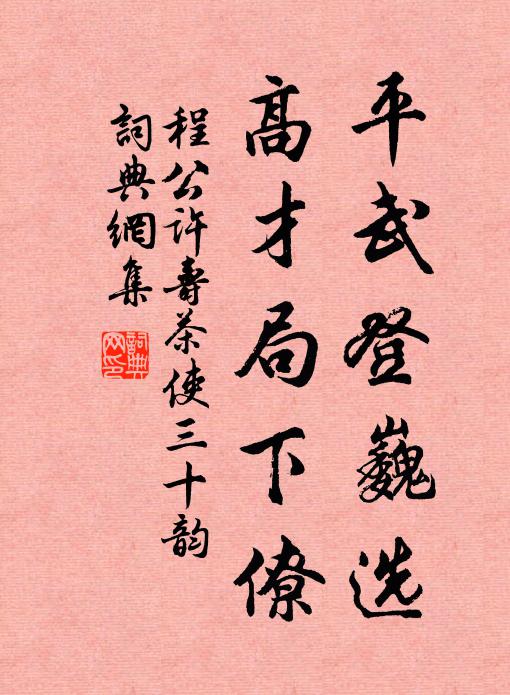 平武登巍选
高才局下僚
程公许寿茶使三十韵
詞典網集
詞典網印